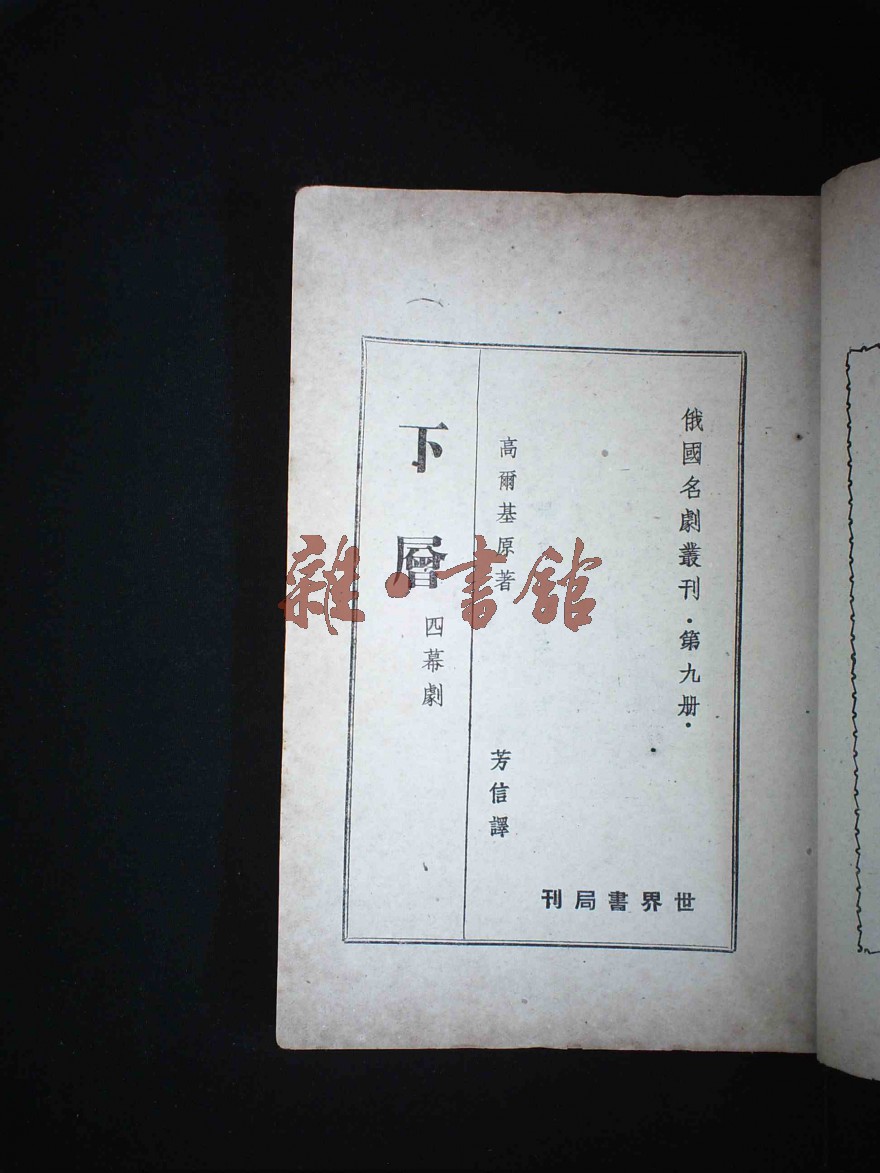 俄國名劇叢刊·第九册·
高爾基原著
芳信譯
下層
四幕劇
世界書局刊
雜·書館